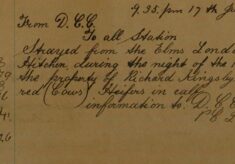 9.35 pm 17th
From D.C.C.
To all Station
Strayed from the Elms Londo
Hitchin, during the night of the 1
the property of Richard Kingsly
red (Cows) Heifers in calf
information to D.C.C